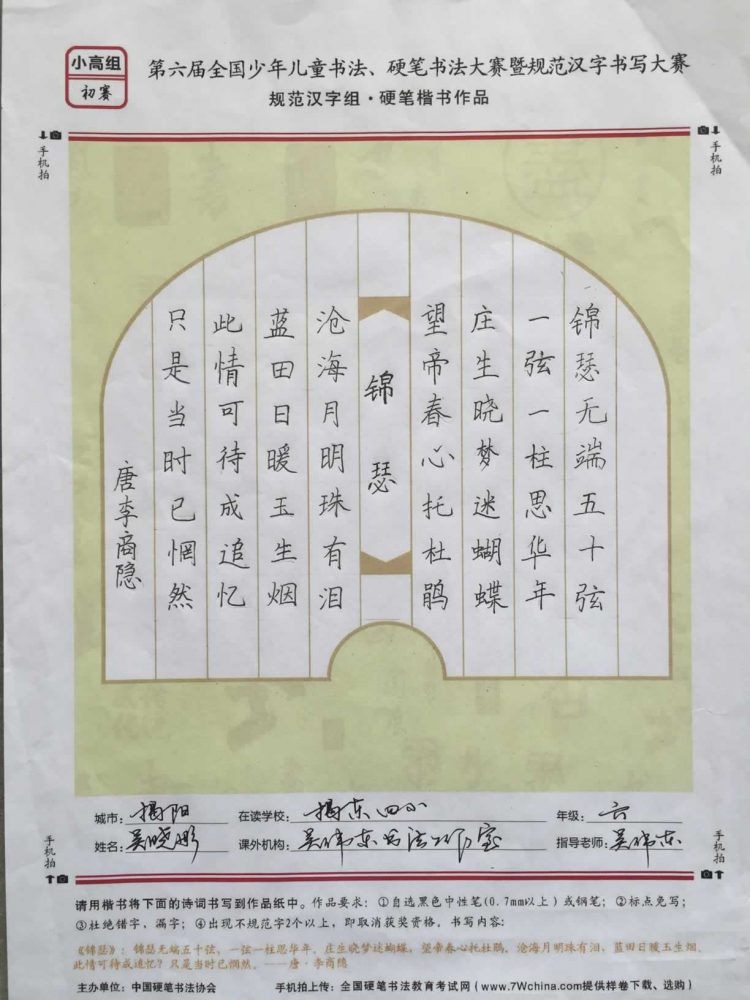 小高组
初赛
第六届全国少年儿童书法、硬笔书法大赛暨规范汉字书写大赛
规范汉字组·硬笔楷书作品
手机拍
手机拍
锦瑟无端五十弦
一弦一柱思华年
庄生晓梦迷蝴蝶
望帝春心托杜鹃
锦瑟
沧海月明珠有泪
蓝田日暖玉生烟
此情可待成追忆
只是当时已惘然
唐李商隐
城市：揭阳 在读学校：揭东四小 年级：六
姓名：吴晓彬 课外机构：吴伟东书法工作室 指导老师：吴伟东
手机拍
手机拍
请用楷书将下面的诗词书写到作品纸中。作品要求：①自选黑色中性笔(0.7mm以上)或钢笔；②标点免写；
③杜绝错字，漏字；④出现不规范字2个以上，即取消获奖资格。书写内容：
《锦瑟》：锦瑟无端五十弦，一弦一柱思华年。庄生晓梦迷蝴蝶，望帝春心托杜鹃。沧海月明珠有泪，蓝田日暖玉生烟。
此情可待成追忆？只是当时已惘然。——唐·李商隐
主办单位：中国硬笔书法协会 手机拍上传：全国硬笔书法教育考试网(www.7Wchina.com提供样卷下载、选购)